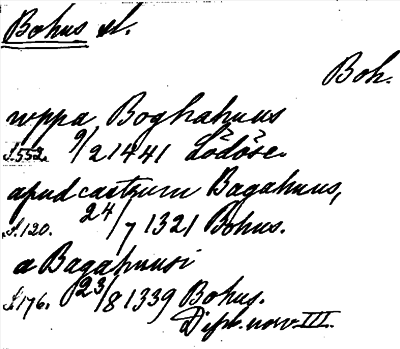 Bohus sl.
Boh.
uppa Boghahuus
S.552. 9/2 1441 Lödöse.
apud castrum Bagahuus,
S.120. 24/7 1321 Bohus.
a Bagahuusi
S.176. 23/8 1339 Bohus.
Dipl. norv. III.